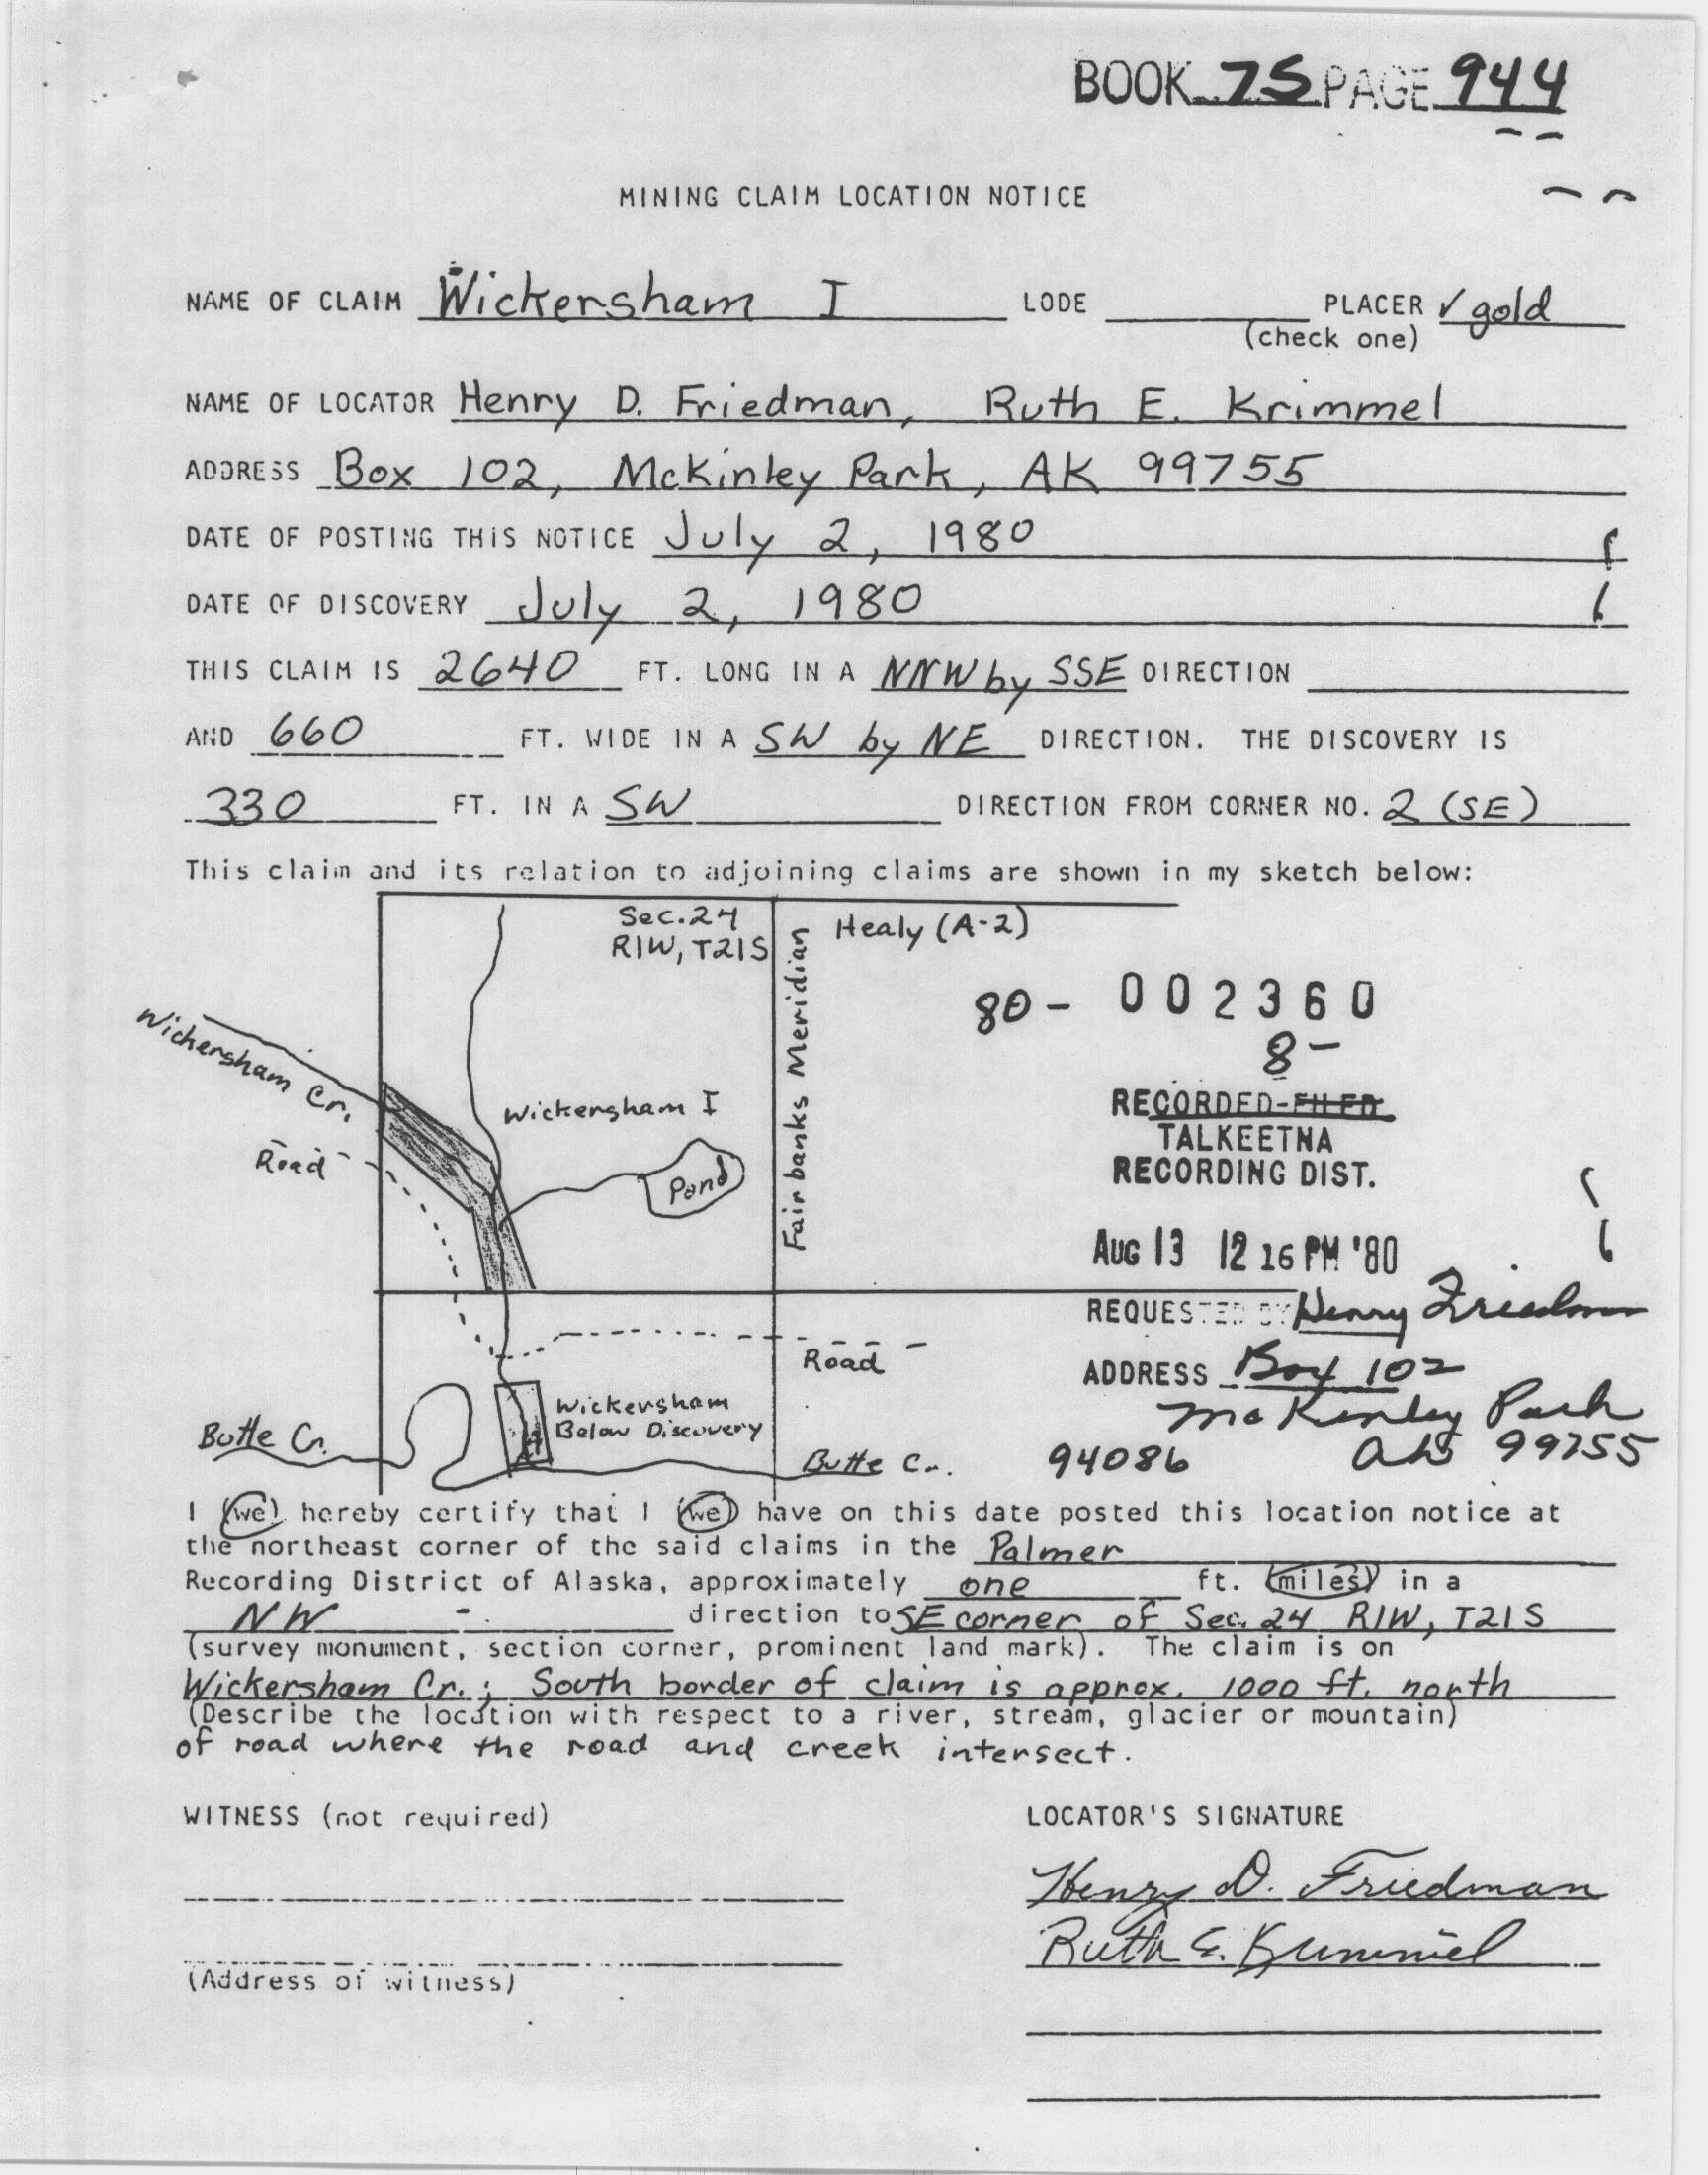 BOOK 75 PAGE 944
MINING CLAIM LOCATION NOTICE
NAME OF CLAIM Wickersham I LODE PLACER ✓ gold
(check one)
NAME OF LOCATOR Henry D. Friedman, Ruth E. Krimmel
ADDRESS Box 102, McKinley Park, AK 99755
DATE OF POSTING THIS NOTICE July 2, 1980
DATE OF DISCOVERY July 2, 1980
THIS CLAIM IS 2640 FT. LONG IN A NNW by SSE DIRECTION
AND 660 FT. WIDE IN A SW by NE DIRECTION. THE DISCOVERY IS
330 FT. IN A SW DIRECTION FROM CORNER NO. 2 (SE)
This claim and its relation to adjoining claims are shown in my sketch below:
Sec. 24
R1W, T21S
Healy (A-2)
Fairbanks Meridian
Wickersham Cr.
Road
Wickersham I
Pond
Road
Wickersham
Below Discovery
Butte Cr.
Butte Cr.
80- 002360
8-
RECORDED-FILED
TALKEETNA
RECORDING DIST.
AUG 13 12 16 PM '80
REQUESTED BY Henry Friedman
ADDRESS Box 102
McKinley Park
94086 Ak 99755
I (we) hereby certify that I (we) have on this date posted this location notice at
the northeast corner of the said claims in the Palmer
Recording District of Alaska, approximately one ft. (miles) in a
NW direction to SE corner of Sec. 24 R1W, T21S
(survey monument, section corner, prominent land mark). The claim is on
Wickersham Cr.; South border of claim is approx. 1000 ft. north
(Describe the location with respect to a river, stream, glacier or mountain)
of road where the road and creek intersect.
WITNESS (not required) LOCATOR'S SIGNATURE
Henry D. Friedman
Ruth E. Krimmel
(Address of witness)